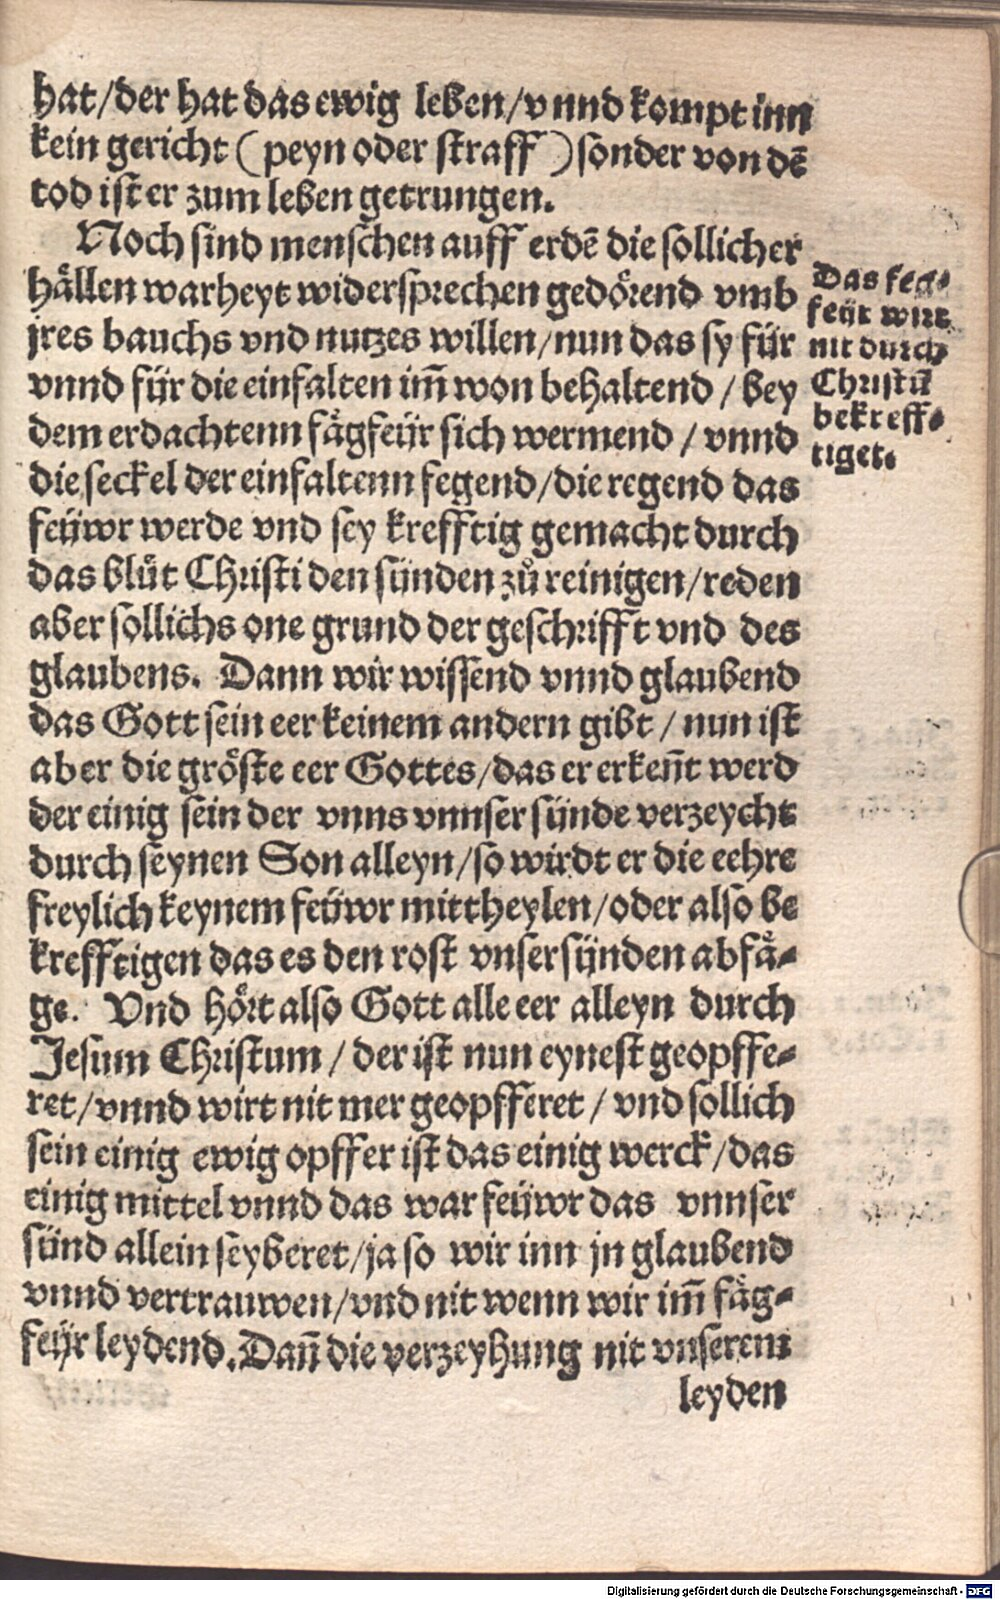 hat/der hat das ewig leben/vnnd kompt inn
kein gericht (peyn oder straff) sonder von dē
tod ist er zum leben getrungen.
Noch sind menschen auff erdē die sollicher
hällen warheyt widersprechen gedörend vmb
jres bauchs vnd nutzes willen/nun das sy für
vnnd für die einfalten im̄ won behaltend/bey
dem erdachtenn fägfeür sich wermend/vnnd
die seckel der einfaltenn fegend/die regend das
feüwr werde vnd sey krefftig gemacht durch
das blůt Christi den sünden zů reinigen/reden
aber sollichs one grund der geschrifft vnd des
glaubens. Dann wir wissend vnnd glaubend
das Gott sein eer keinem andern gibt/nun ist
aber die gröste eer Gottes/das er erken̄t werd
der einig sein der vnns vnnser sünde verzeycht
durch seynen Son alleyn/so wirdt er die eehre
freylich keynem feüwr mittheylen/oder also be
krefftigen das es den rost vnser sünden abfä-
ge. Vnd hört also Gott alle eer alleyn durch
Jesum Christum/der ist nun eynest geopffe-
ret/vnnd wirt nit mer geopfferet/vnd sollich
sein einig ewig opffer ist das einig werck/das
einig mittel vnnd das war feüwr das vnnser
sünd allein seyberet/ja so wir inn jn glaubend
vnnd vertrauwen/vnd nit wenn wir im̄ fäg-
feür leydend. Dan̄ die verzeyhung nit vnserem
leyden
Das feg-
feür wirt
nit durch
Christū
bekreff-
tiget.
Digitalisierung gefördert durch die Deutsche Forschungsgemeinschaft - DFG